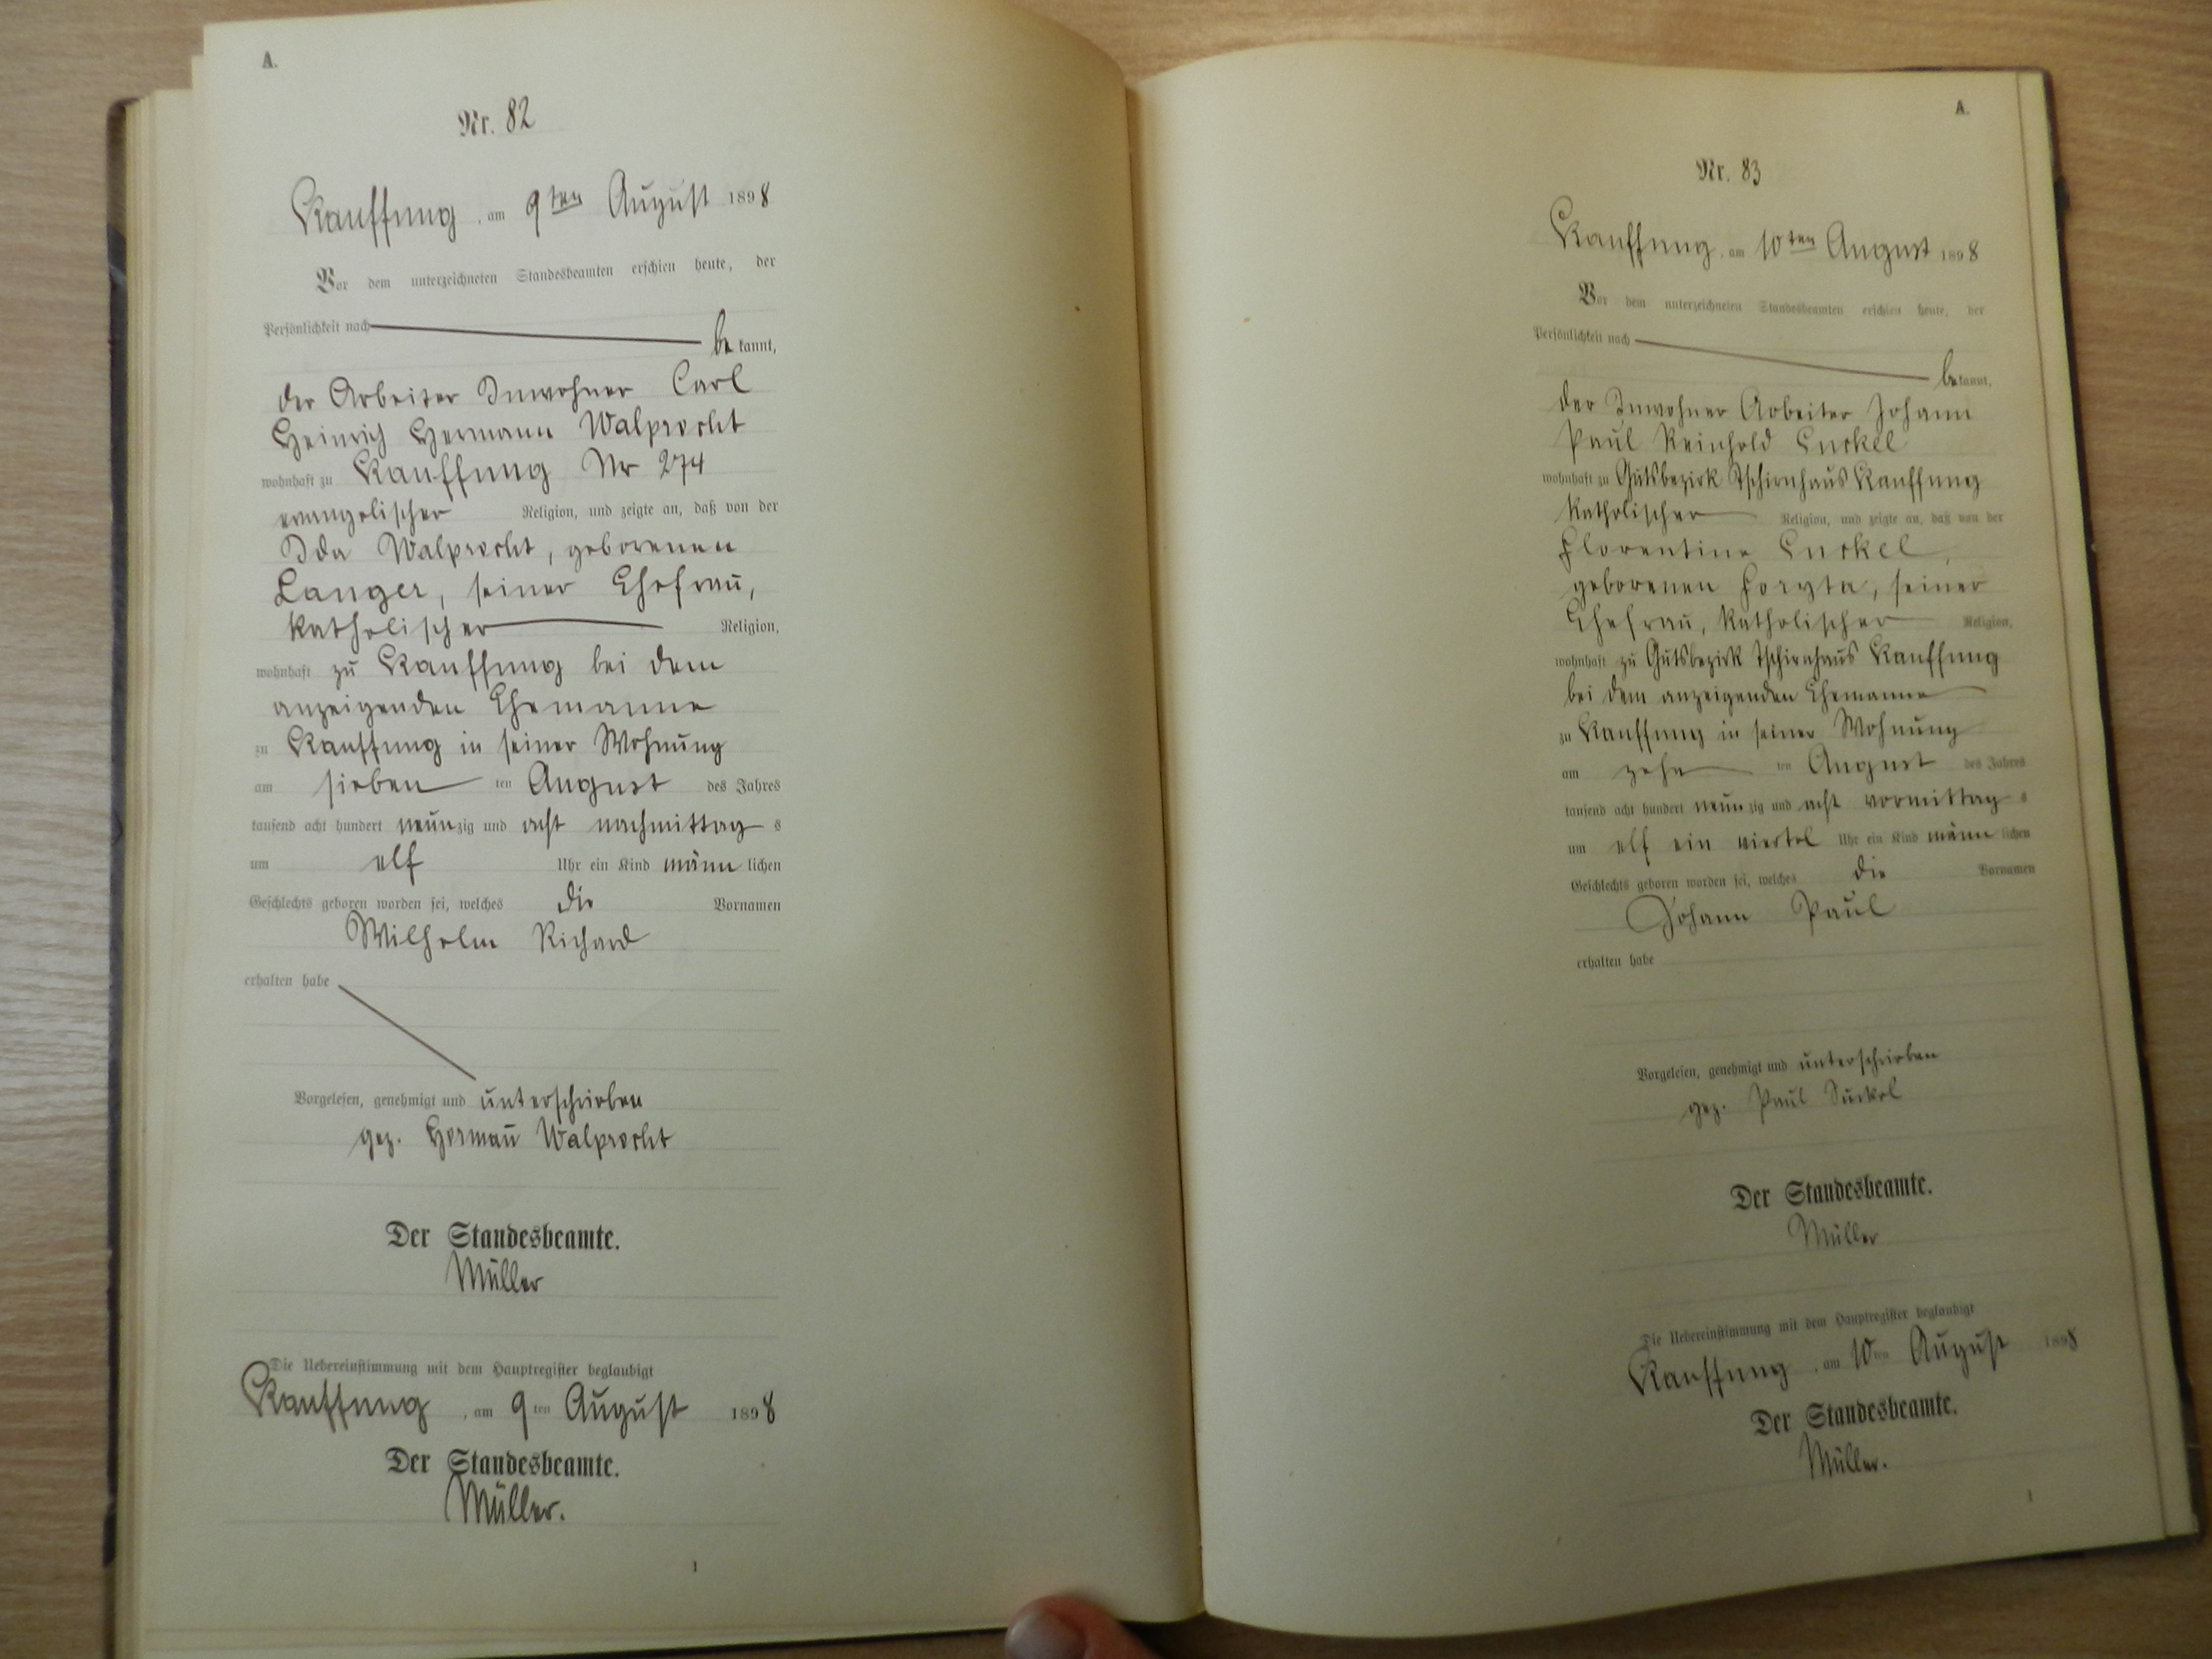 A.
Nr. 82
Kauffung, am 9ten August 1898
Vor dem unterzeichneten Standesbeamten erschien heute, der
Persönlichkeit nach
bekannt,
der Arbeiter Inwohner Carl
Heinrich Hermann Walprecht
wohnhaft zu Kauffung Nr 274
evangelischer Religion, und zeigte an, daß von der
Ida Walprecht, geborenen
Langer, seiner Ehefrau,
katholischer Religion,
wohnhaft zu Kauffung bei dem
anzeigenden Ehemanne
zu Kauffung in seiner Wohnung
am sieben ten August des Jahres
tausend acht hundert neunzig und acht nachmittags
um elf Uhr ein Kind männlichen
Geschlechts geboren worden sei, welches die Vornamen
Wilhelm Richard
erhalten habe
Vorgelesen, genehmigt und unterschrieben
gez. Hermann Walprecht
Der Standesbeamte.
Müller
Die Uebereinstimmung mit dem Hauptregister beglaubigt
Kauffung, am 9ten August 1898
Der Standesbeamte.
Müller.
1
A.
Nr. 83
Kauffung, am 10ten August 1898
Vor dem unterzeichneten Standesbeamten erschien heute, der
Persönlichkeit nach
bekannt,
der Inwohner Arbeiter Johann
Paul Reinhold Suckel
wohnhaft zu Gutsbezirk Tschirnhaus Kauffung
katholischer Religion, und zeigte an, daß von der
Florentine Suckel,
geborenen seiner
Ehefrau, katholischer Religion,
wohnhaft zu Gutsbezirk Tschirnhaus Kauffung
bei dem anzeigenden Ehemanne
zu Kauffung in seiner Wohnung
am zehn ten August des Jahres
tausend acht hundert neunzig und acht vormittags
um elf ein viertel Uhr ein Kind männlichen
Geschlechts geboren worden sei, welches die Vornamen
Johann Paul
erhalten habe
Vorgelesen, genehmigt und unterschrieben
gez. Paul Suckel
Der Standesbeamte.
Müller
Die Uebereinstimmung mit dem Hauptregister beglaubigt
Kauffung, am 10ten August 1898
Der Standesbeamte.
Müller.
1